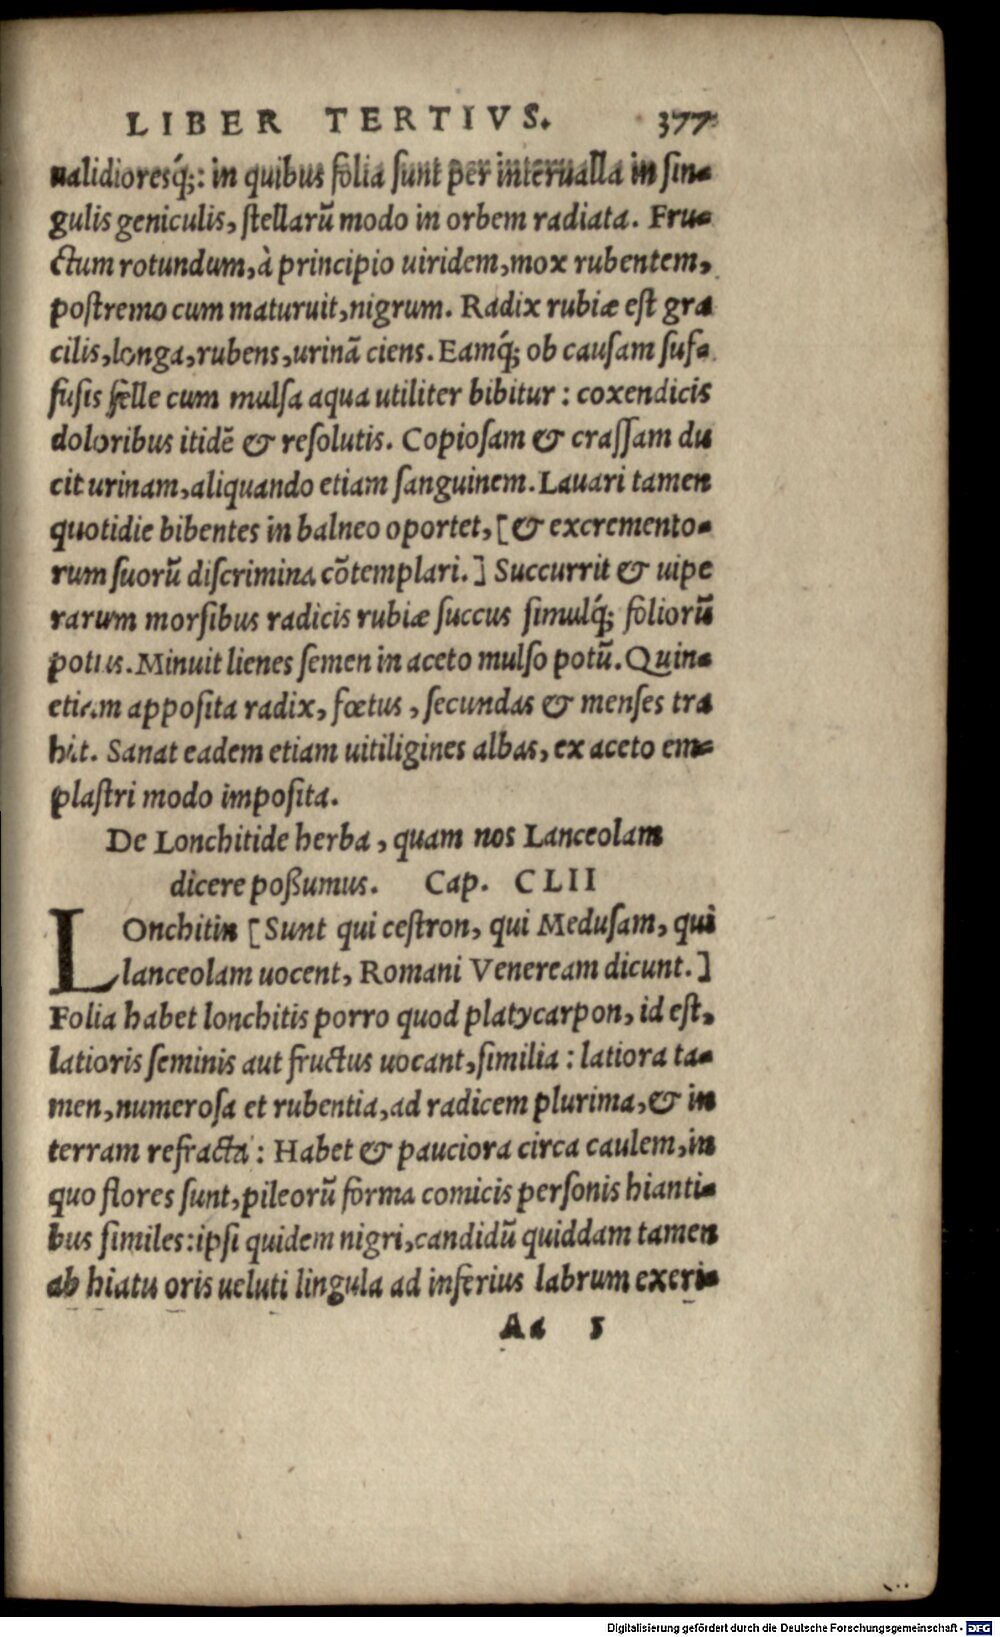 LIBER TERTIVS. 377
ualidioresq́;: in quibus folia sunt per interualla in sin-
gulis geniculis, stellarũ modo in orbem radiata. Fru-
ctum rotundum, à principio uiridem, mox rubentem,
postremo cum maturuit, nigrum. Radix rubiæ est gra
cilis, longa, rubens, urinã ciens. Eamq́; ob causam suf-
fusis felle cum mulsa aqua utiliter bibitur : coxendicis
doloribus itidẽ & resolutis. Copiosam & crassam du
cit urinam, aliquando etiam sanguinem. Lauari tamen
quotidie bibentes in balneo oportet, [& excremento-
rum suorũ discrimina cõtemplari.] Succurrit & uipe
rarum morsibus radicis rubiæ succus simulq́; foliorũ
potus. Minuit lienes semen in aceto mulso potũ. Quin-
etiam apposita radix, fœtus, secundas & menses tra
hit. Sanat eadem etiam uitiligines albas, ex aceto em-
plastri modo imposita.
De Lonchitide herba, quam nos Lanceolam
dicere poßumus. Cap. CLII
LOnchitin [Sunt qui cestron, qui Medusam, qui
lanceolam uocent, Romani Veneream dicunt.]
Folia habet lonchitis porro quod platycarpon, id est,
latioris seminis aut fructus uocant, similia : latiora ta-
men, numerosa et rubentia, ad radicem plurima, & in
terram refracta : Habet & pauciora circa caulem, in
quo flores sunt, pileorũ forma comicis personis hianti-
bus similes: ipsi quidem nigri, candidũ quiddam tamen
ab hiatu oris ueluti lingula ad inferius labrum exeri-
Aa 5
Digitalisierung gefördert durch die Deutsche Forschungsgemeinschaft - DFG